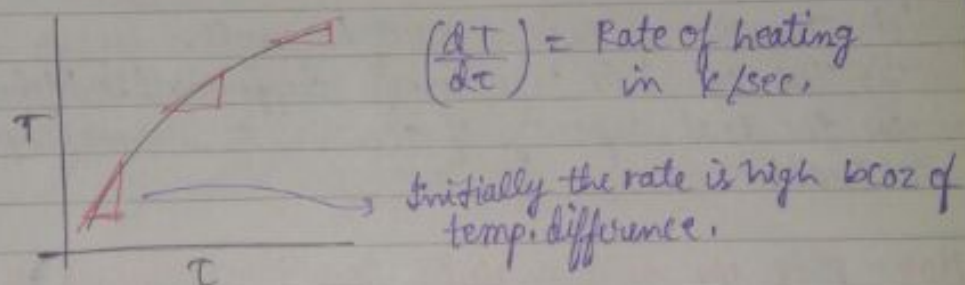 (dT/dτ) = Rate of heating
in K/sec.
T
Initially the rate is high bcoz of
temp. difference.
τ